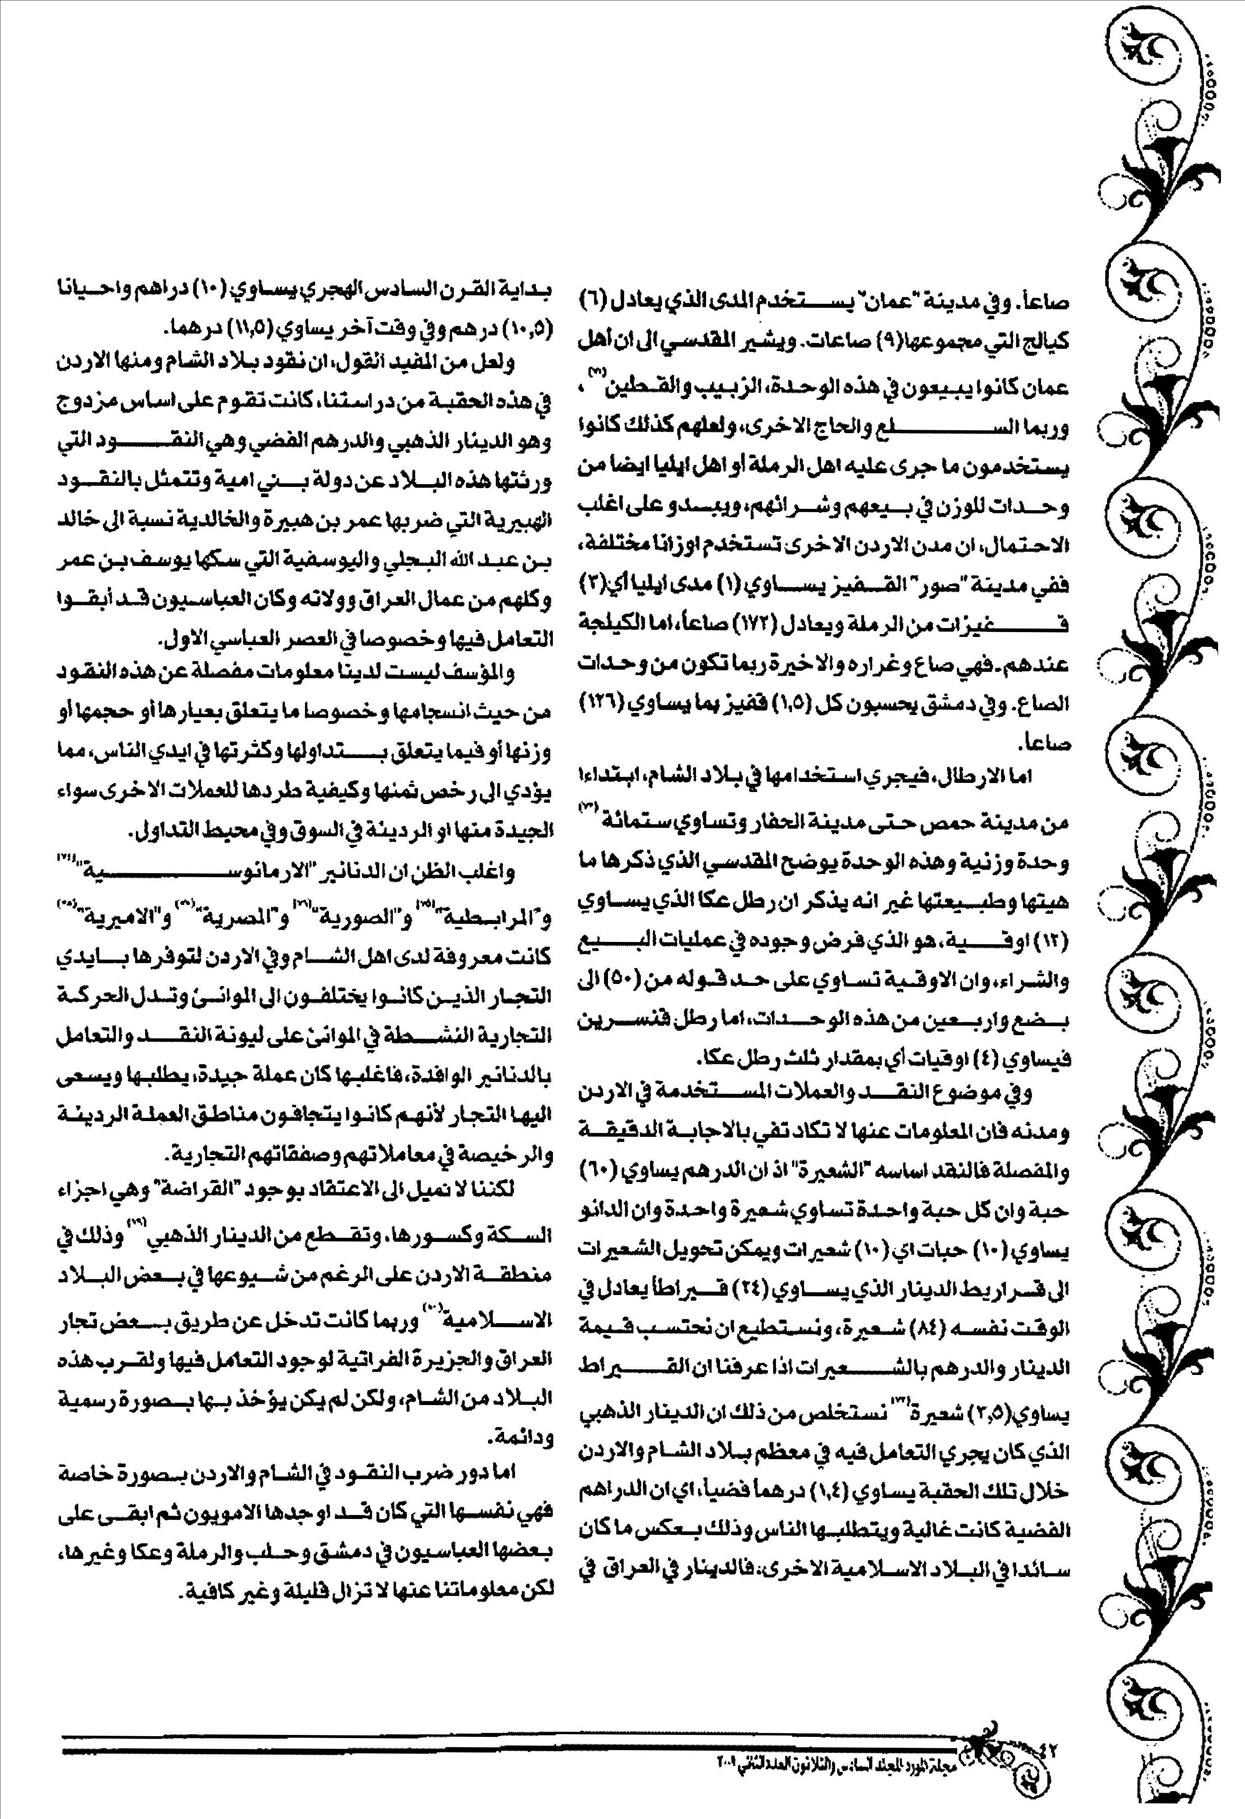 صاعاً. وفي مدينة "عمان" يستخدم المدى الذي يعادل (٦)
كيالج التي مجموعها (٩) صاعات. ويشير المقدسي الى ان أهل
عمان كانوا يبيعون في هذه الوحدة، الزبيب والقطين(٧١)،
وربما السلع والحاج الاخرى، ولعلهم كذلك كانوا
يستخدمون ما جرى عليه اهل الرملة أو اهل ايليا ايضا من
وحدات للوزن في بيعهم وشرائهم، ويبدو على اغلب
الاحتمال، ان مدن الاردن الاخرى تستخدم اوزانا مختلفة،
ففي مدينة "صور" القفيز يساوي (١) مدى ايليا أي (٣)
قفيزات من الرملة ويعادل (١٧٢) صاعاً، اما الكيلجة
عندهم. فهي صاع وغراره والاخيرة ربما تكون من وحدات
الصاع. وفي دمشق يحسبون كل (١,٥) قفيز بما يساوي (١٢٦)
صاعاً.
اما الارطال، فيجري استخدامها في بلاد الشام، ابتداءا
من مدينة حمص حتى مدينة الحفار وتساوي ستمائة
وحدة وزنية وهذه الوحدة يوضح المقدسي الذي ذكرها ما
هيتها وطبيعتها غير انه يذكر ان رطل عكا الذي يساوي
(١٢) اوقية، هو الذي فرض وجوده في عمليات البيع
والشراء، وان الاوقية تساوي على حد قوله من (٥٠) الى
بضع واربعين من هذه الوحدات، اما رطل قنسرين
فيساوي (٤) اوقيات أي بمقدار ثلث رطل عكا.
وفي موضوع النقد والعملات المستخدمة في الاردن
ومدنه فان المعلومات عنها لا تكاد تفي بالاجابة الدقيقة
والمفصلة فالنقد اساسه "الشعيرة" اذ ان الدرهم يساوي (٦٠)
حبة وان كل حبة واحدة تساوي شعيرة واحدة وان الدانو
يساوي (١٠) حبات اي (١٠) شعيرات ويمكن تحويل الشعيرات
الى قراريط الدينار الذي يساوي (٢٤) قيراطاً يعادل في
الوقت نفسه (٨٤) شعيرة، ونستطيع ان نحتسب قيمة
الدينار والدرهم بالشعيرات اذا عرفنا ان القيراط
يساوي (٣,٥) شعيرة نستخلص من ذلك ان الدينار الذهبي
الذي كان يجري التعامل فيه في معظم بلاد الشام والاردن
خلال تلك الحقبة يساوي (١,٤) درهماً فضياً، اي ان الدراهم
الفضية كانت غالية ويتطلبها الناس وذلك بعكس ما كان
سائدا في البلاد الاسلامية الاخرى، فالدينار في العراق في
بداية القرن السادس الهجري يساوي (١٠) دراهم واحيانا
(١٠,٥) درهم وفي وقت آخر يساوي (١١,٥) درهما.
ولعل من المفيد القول، ان نقود بلاد الشام ومنها الاردن
في هذه الحقبة من دراستنا، كانت تقوم على اساس مزدوج
وهو الدينار الذهبي والدرهم الفضي وهي النقود التي
ورثتها هذه البلاد عن دولة بني امية وتتمثل بالنقود
الهبيرية التي ضربها عمر بن هبيرة والخالدية نسبة الى خالد
بن عبد الله البجلي واليوسفية التي سكها يوسف بن عمر
وكلهم من عمال العراق وولاته وكان العباسيون قد أبقوا
التعامل فيها وخصوصا في العصر العباسي الاول.
والمؤسف ليست لدينا معلومات مفصلة عن هذه النقود
من حيث انسجامها وخصوصا ما يتعلق بعيارها أو حجمها أو
وزنها أو فيما يتعلق بتداولها وكثرتها في ايدي الناس، مما
يؤدي الى رخص ثمنها وكيفية طردها للعملات الاخرى سواء
الجيدة منها او الرديئة في السوق وفي محيط التداول.
واغلب الظن ان الدنانير "الارمانوسية"
و"المرابطية" و"الصورية" و"المصرية" و"الاميرية"
كانت معروفة لدى اهل الشام وفي الاردن لتوفرها بايدي
التجار الذين كانوا يختلفون الى الموانئ وتدل الحركة
التجارية النشطة في الموانئ على ليونة النقد والتعامل
بالدنانير الوافدة، فاغلبها كان عملة جيدة، يطلبها ويسعى
اليها التجار لأنهم كانوا يتجافون مناطق العملة الرديئة
والرخيصة في معاملاتهم وصفقاتهم التجارية.
لكننا لا نميل الى الاعتقاد بوجود "القراضة" وهي اجزاء
السكة وكسورها، وتقطع من الدينار الذهبي وذلك في
منطقة الاردن على الرغم من شيوعها في بعض البلاد
الاسلامية وربما كانت تدخل عن طريق بعض تجار
العراق والجزيرة الفراتية لوجود التعامل فيها ولقرب هذه
البلاد من الشام، ولكن لم يكن يؤخذ بها بصورة رسمية
ودائمة.
اما دور ضرب النقود في الشام والاردن بصورة خاصة
فهي نفسها التي كان قد اوجدها الامويون ثم ابقى على
بعضها العباسيون في دمشق وحلب والرملة وعكا وغيرها،
لكن معلوماتنا عنها لا تزال قليلة وغير كافية.
٤٢
مجلة المورد المجلد السادس والثلاثون العدد الثاني ٢٠٠٩